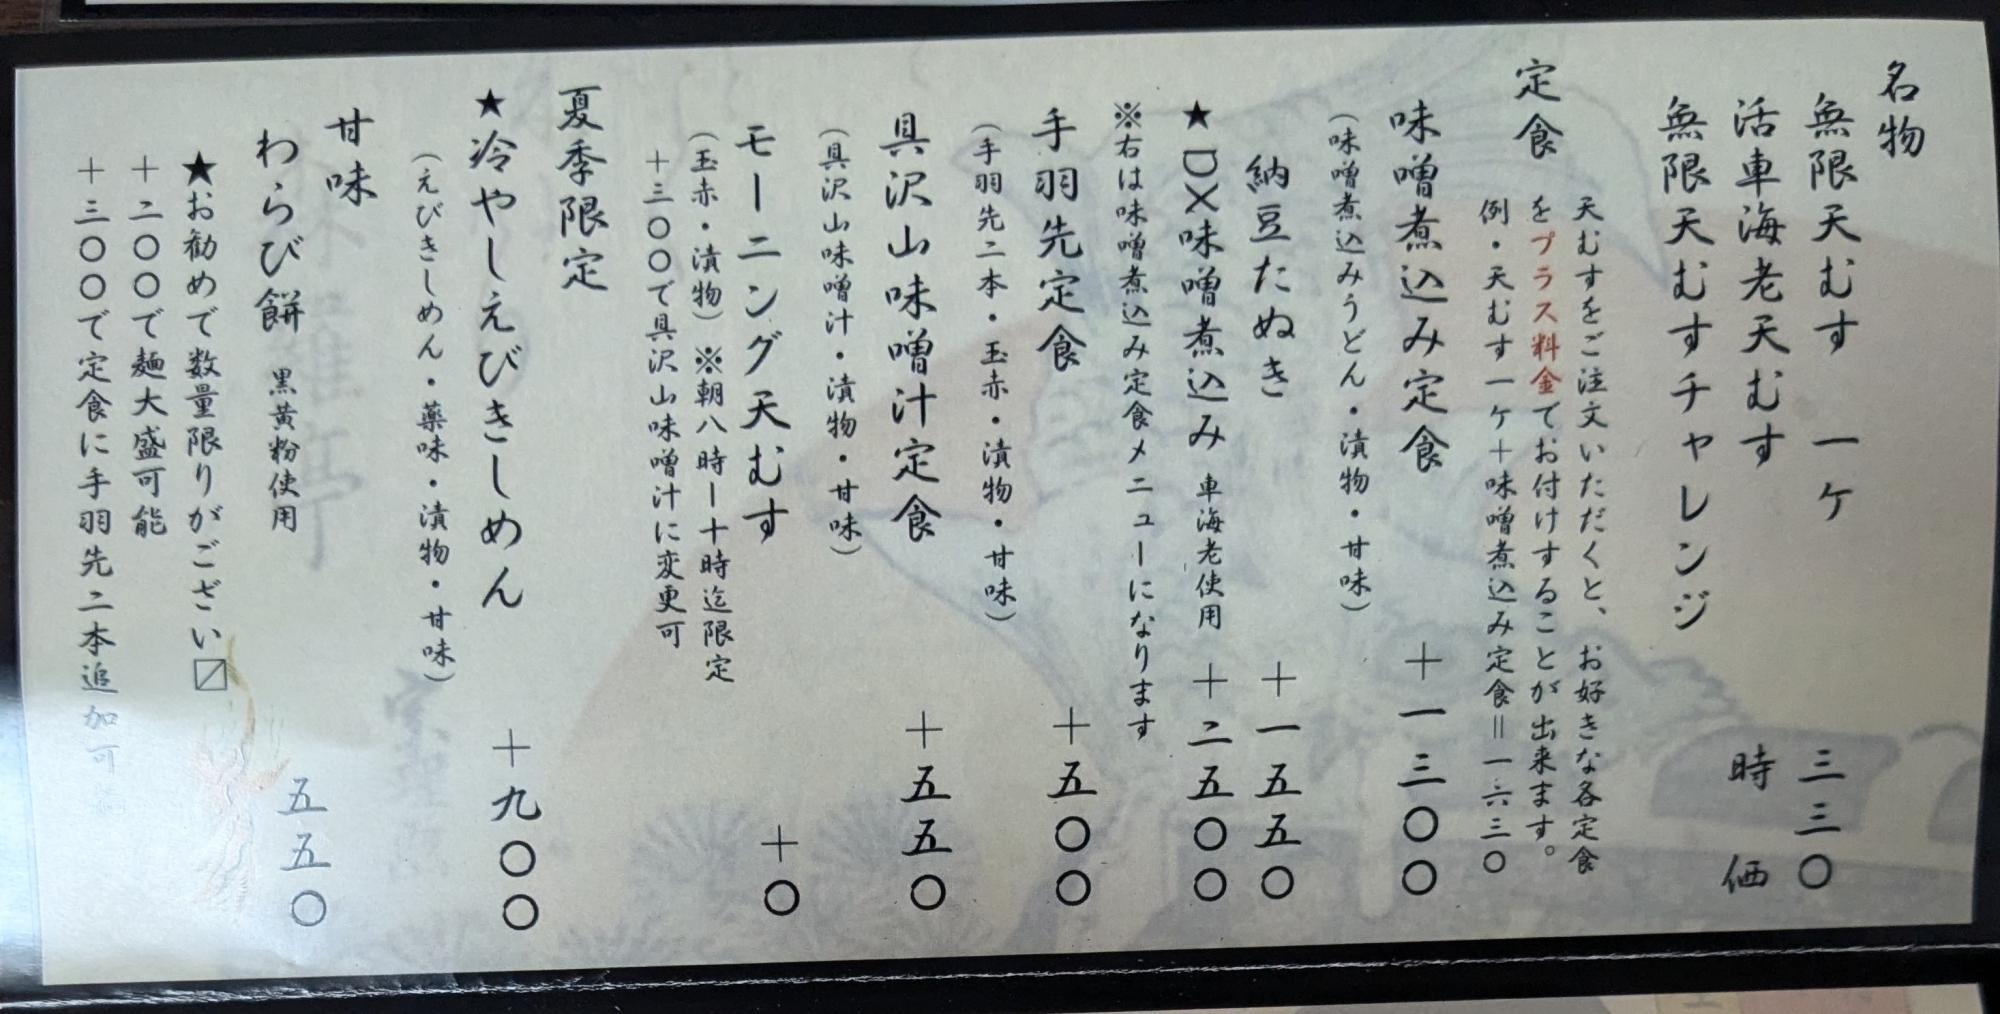 名物
無限天むす 一ケ 三三〇
活車海老天むす 時価
無限天むすチャレンジ
定食
天むすをご注文いただくと、お好きな各定食
をプラス料金でお付けすることが出来ます。
例・天むす一ケ+味噌煮込み定食=一六三〇
味噌煮込み定食 +一三〇〇
(味噌煮込みうどん・漬物・甘味)
納豆たぬき +一五五〇
★DX味噌煮込み 車海老使用 +二五〇〇
※右は味噌煮込み定食メニューになります
手羽先定食 +五〇〇
(手羽先二本・玉赤・漬物・甘味)
具沢山味噌汁定食 +五五〇
(具沢山味噌汁・漬物・甘味)
モーニング天むす +〇
(玉赤・漬物)※朝八時ー十時迄限定
+三〇〇で具沢山味噌汁に変更可
夏季限定
★冷やしえびきしめん +九〇〇
(えびきしめん・薬味・漬物・甘味)
甘味
わらび餅 黒黄粉使用 五五〇
★お勧めで数量限りがござい〼
+二〇〇で麺大盛可能
+三〇〇で定食に手羽先二本追加可能